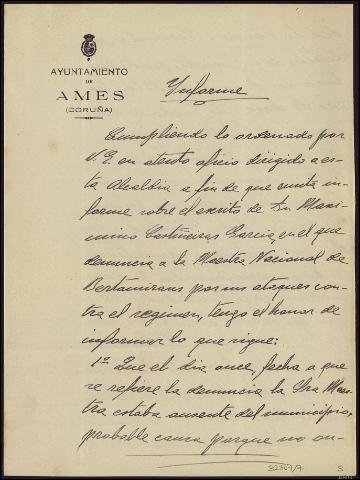 AYUNTAMIENTO
DE
AMES
(CORUÑA)
Informe
Cumpliendo lo ordenado por
V. E. en atento oficio dirigido a es-
ta Alcaldia a fin de que emita in-
forme sobre el escrito de Dn Maxi-
mino Castiñeiras Garcia, en el que
denuncia a la Maestra Nacional de
Bertamirans por sus ataques con-
tra el regimen, tengo el honor de
informar lo que sigue:
1º Que el dia once, fecha a que
se refiere la denuncia la Sra Maes-
tra estaba ausente del municipio,
probable causa porque no on-
32367/7